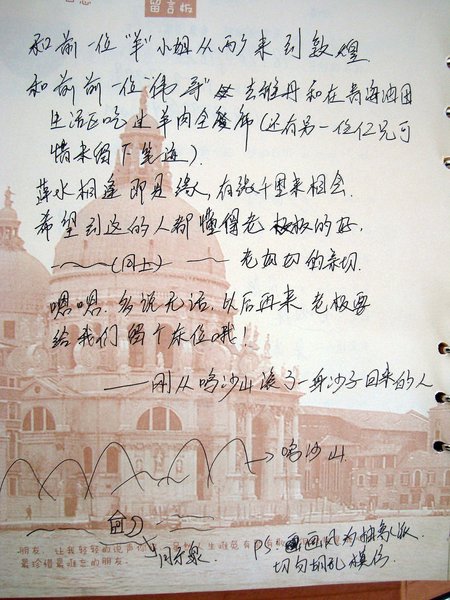 留言板
和前一位"羊"小姐从 来到敦煌.
和前前一位"伟哥"去雅丹和在青海油田
生活区吃过羊肉全席(还有另一位仁兄可
惜未留下笔迹).
萍水相逢即是缘,有缘千里来相会.
希望到这的人都懂得老板的好.
——(同上)—— 老奶奶的亲切.
嗯嗯.多说无话,以后再来老板要
给我们留个床位哦!
——刚从鸣沙山滚了一身沙子回来的人
→鸣沙山
月牙泉
PS:画风为抽象派.
切勿胡乱模仿.
朋友,让我轻轻的说声你
最珍惜最难忘的朋友.